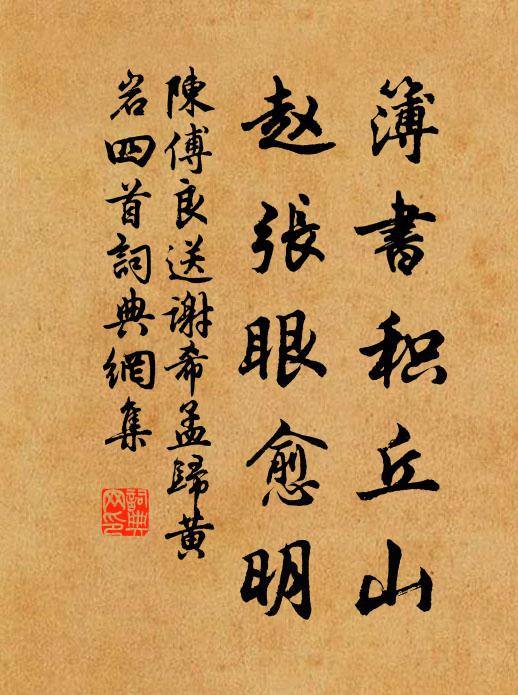 簿書积丘山
赵張眼愈明
陳傅良送谢希孟歸黄
岩四首詞典網集
詞典網印